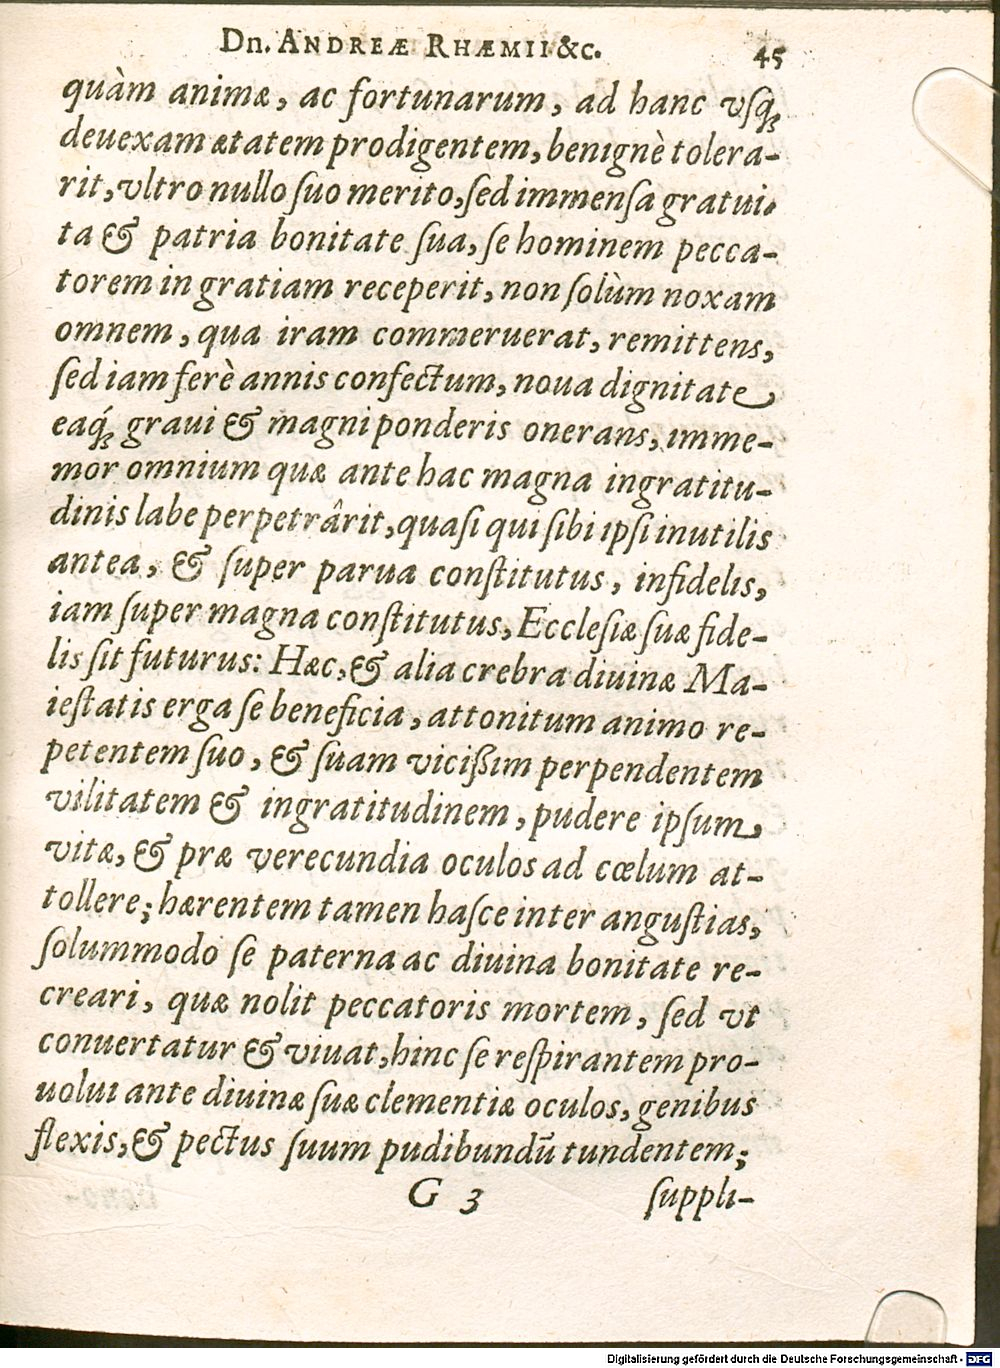 Dn. ANDREÆ RHÆMII &c. 45
quàm animæ, ac fortunarum, ad hanc vſq́ꝫ
deuexam ætatem prodigentem, benignè tolera-
rit, vltro nullo ſuo merito, ſed immenſa gratui-
ta & patria bonitate ſua, ſe hominem pecca-
torem in gratiam receperit, non ſolùm noxam
omnem, qua iram commeruerat, remittens,
ſed iam ferè annis confectum, noua dignitate
eaq́ꝫ graui & magni ponderis onerans, imme-
mor omnium quæ ante hac magna ingratitu-
dinis labe perpetrârit, quaſi qui ſibi ipſi inutilis
antea, & ſuper parua conſtitutus, infidelis,
iam ſuper magna conſtitutus, Eccleſiæ ſuæ fide-
lis ſit futurus: Hæc, & alia crebra diuinæ Ma-
ieſtatis erga ſe beneficia, attonitum animo re-
petentem ſuo, & ſuam viciſſim perpendentem
vilitatem & ingratitudinem, pudere ipſum,
vitæ, & præ verecundia oculos ad cœlum at-
tollere; hærentem tamen haſce inter anguſtias,
ſolummodo ſe paterna ac diuina bonitate re-
creari, quæ nolit peccatoris mortem, ſed vt
conuertatur & viuat, hinc ſe reſpirantem pro-
uolui ante diuinæ ſuæ clementiæ oculos, genibus
flexis, & pectus ſuum pudibundū tundentem;
G 3 ſuppli-
Digitalisierung gefördert durch die Deutsche Forschungsgemeinschaft - DFG